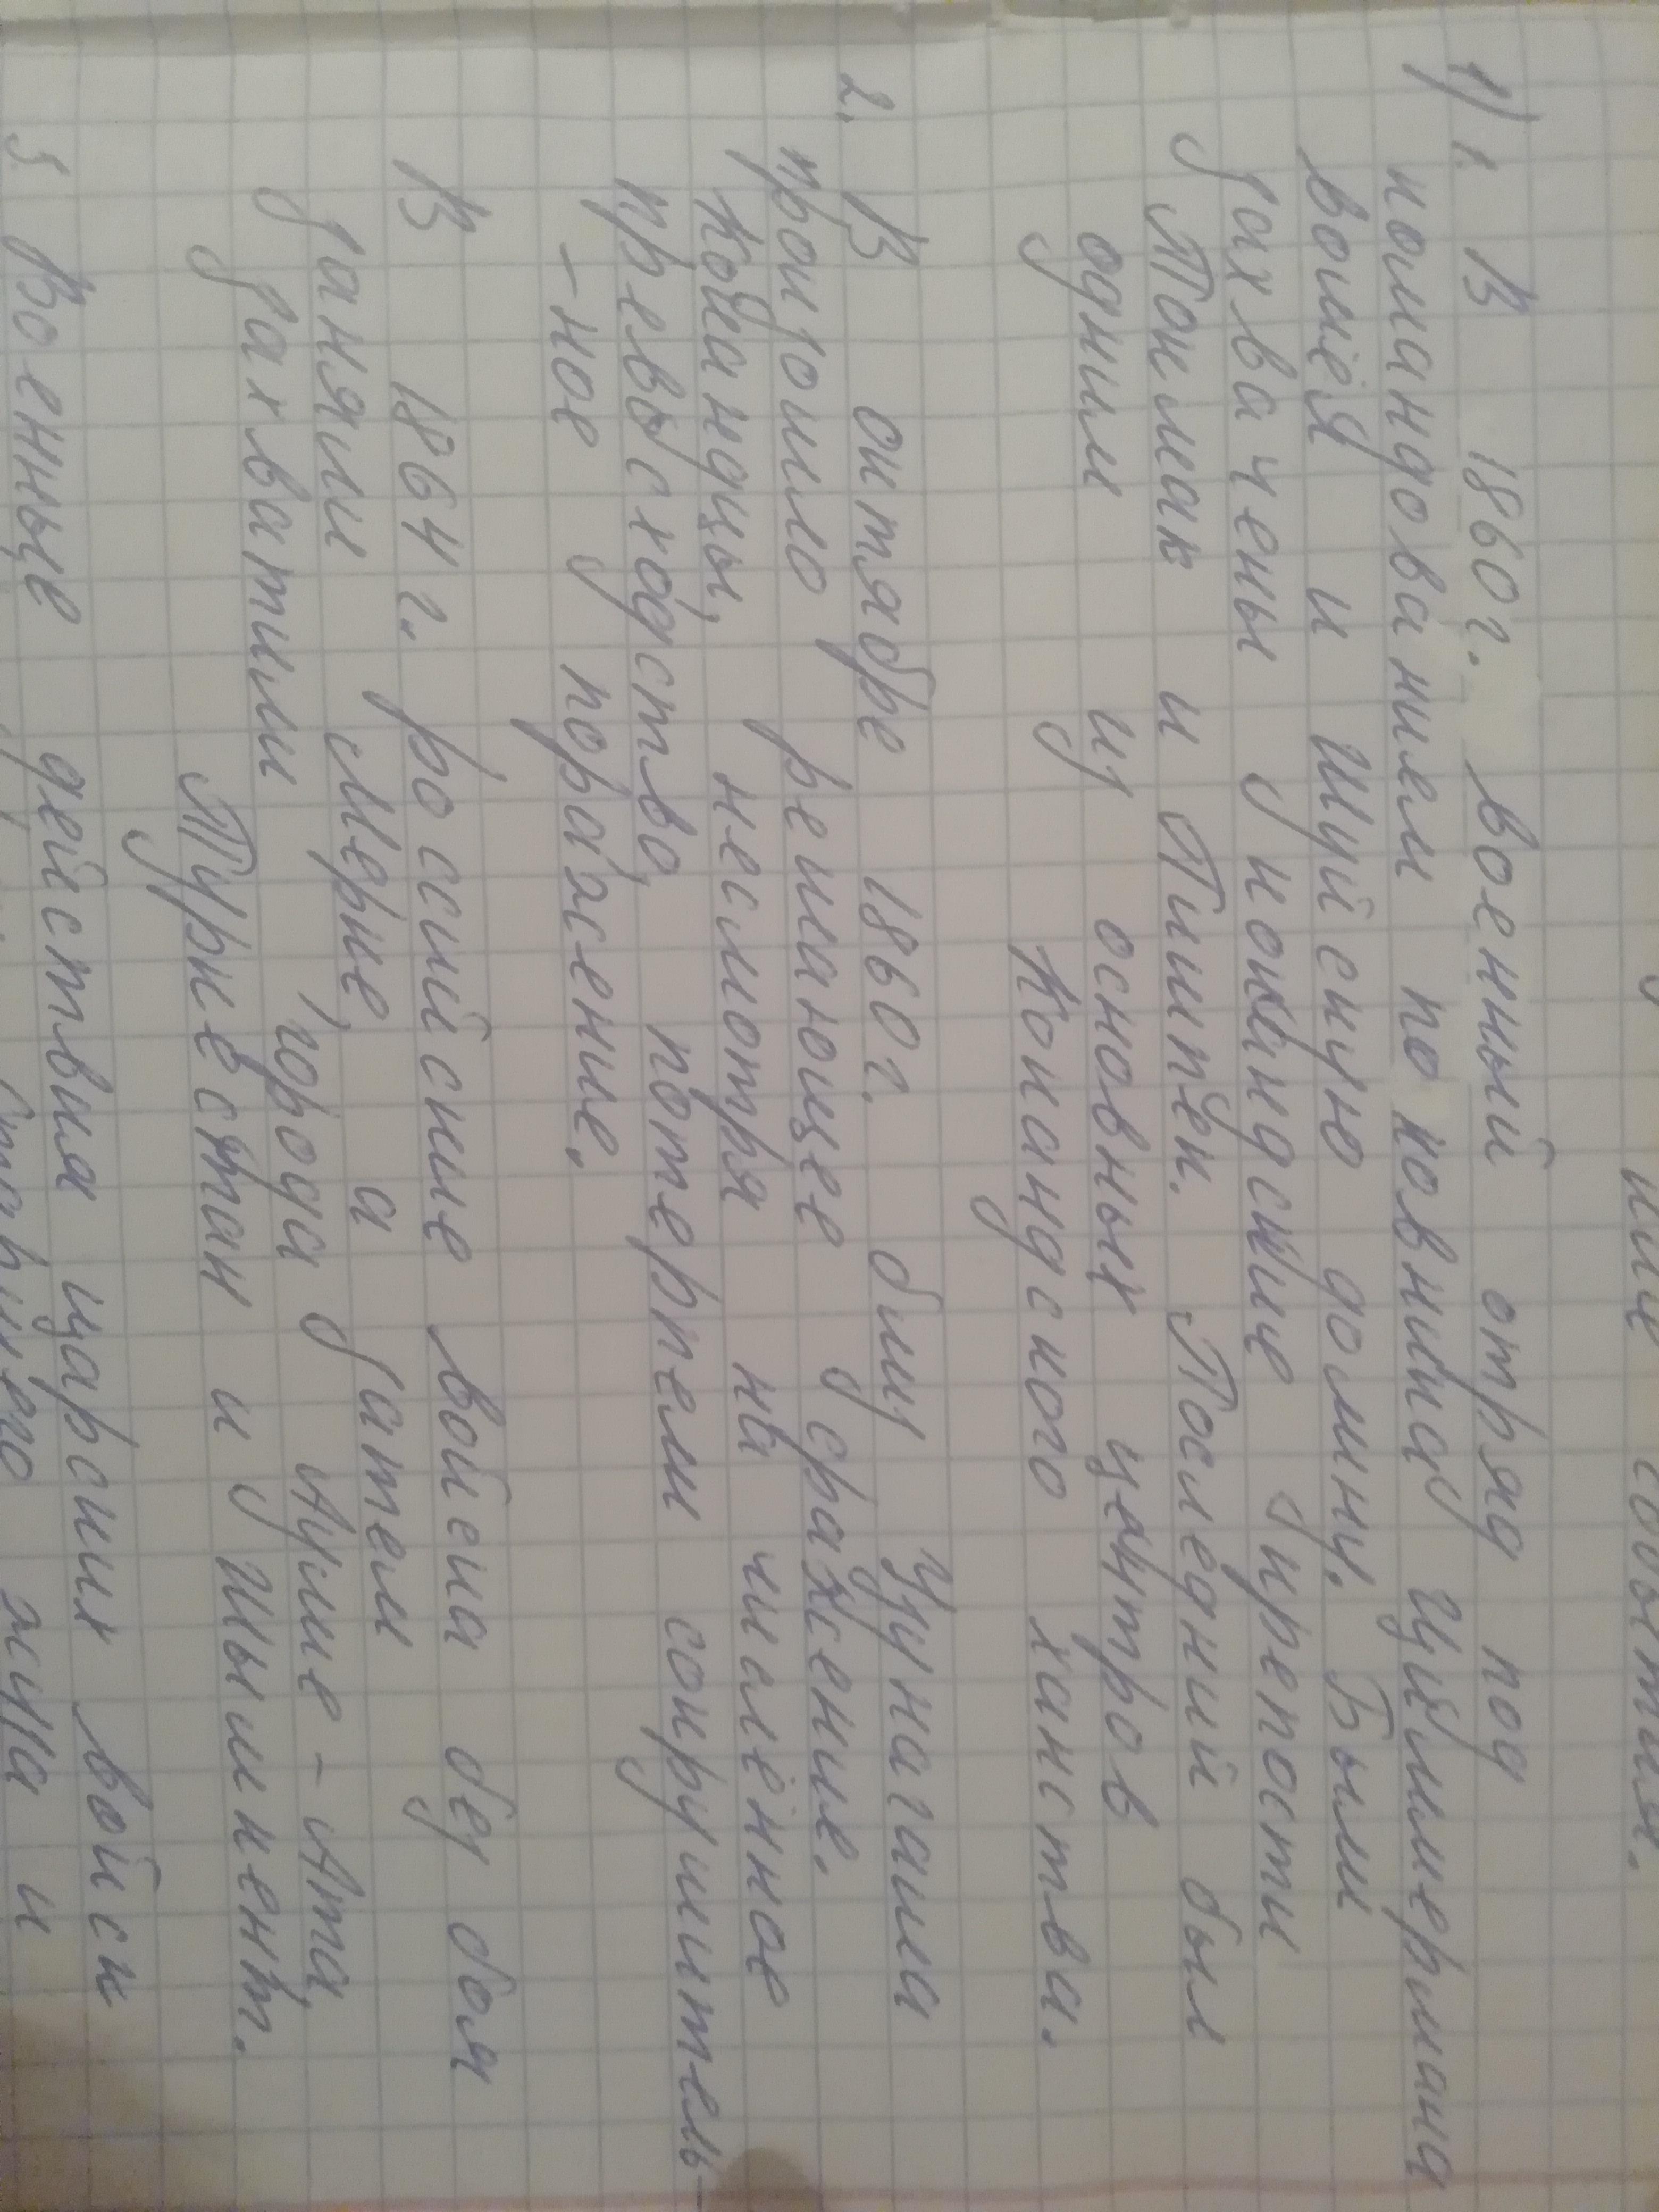 ние события.
1) 1. В 1860 г. военный отряд под
командованием полковника Циммермана
вошёл в Шуйскую долину. Были
захвачены кокандские крепости
Токмак и Пишпек. Последний был
одним из основных центров
Кокандского ханства.
2. В октябре 1860 г. близ Узунагаша
произошло решающее сражение.
Кокандцы, несмотря на численное
превосходство, потерпели сокрушитель-
-ное поражение.
В 1864 г. российские войска без боя
заняли Мерке, а затем
города Аулие-Ата,
захватили Туркестан и Шымкент.
Военные действия царских войск